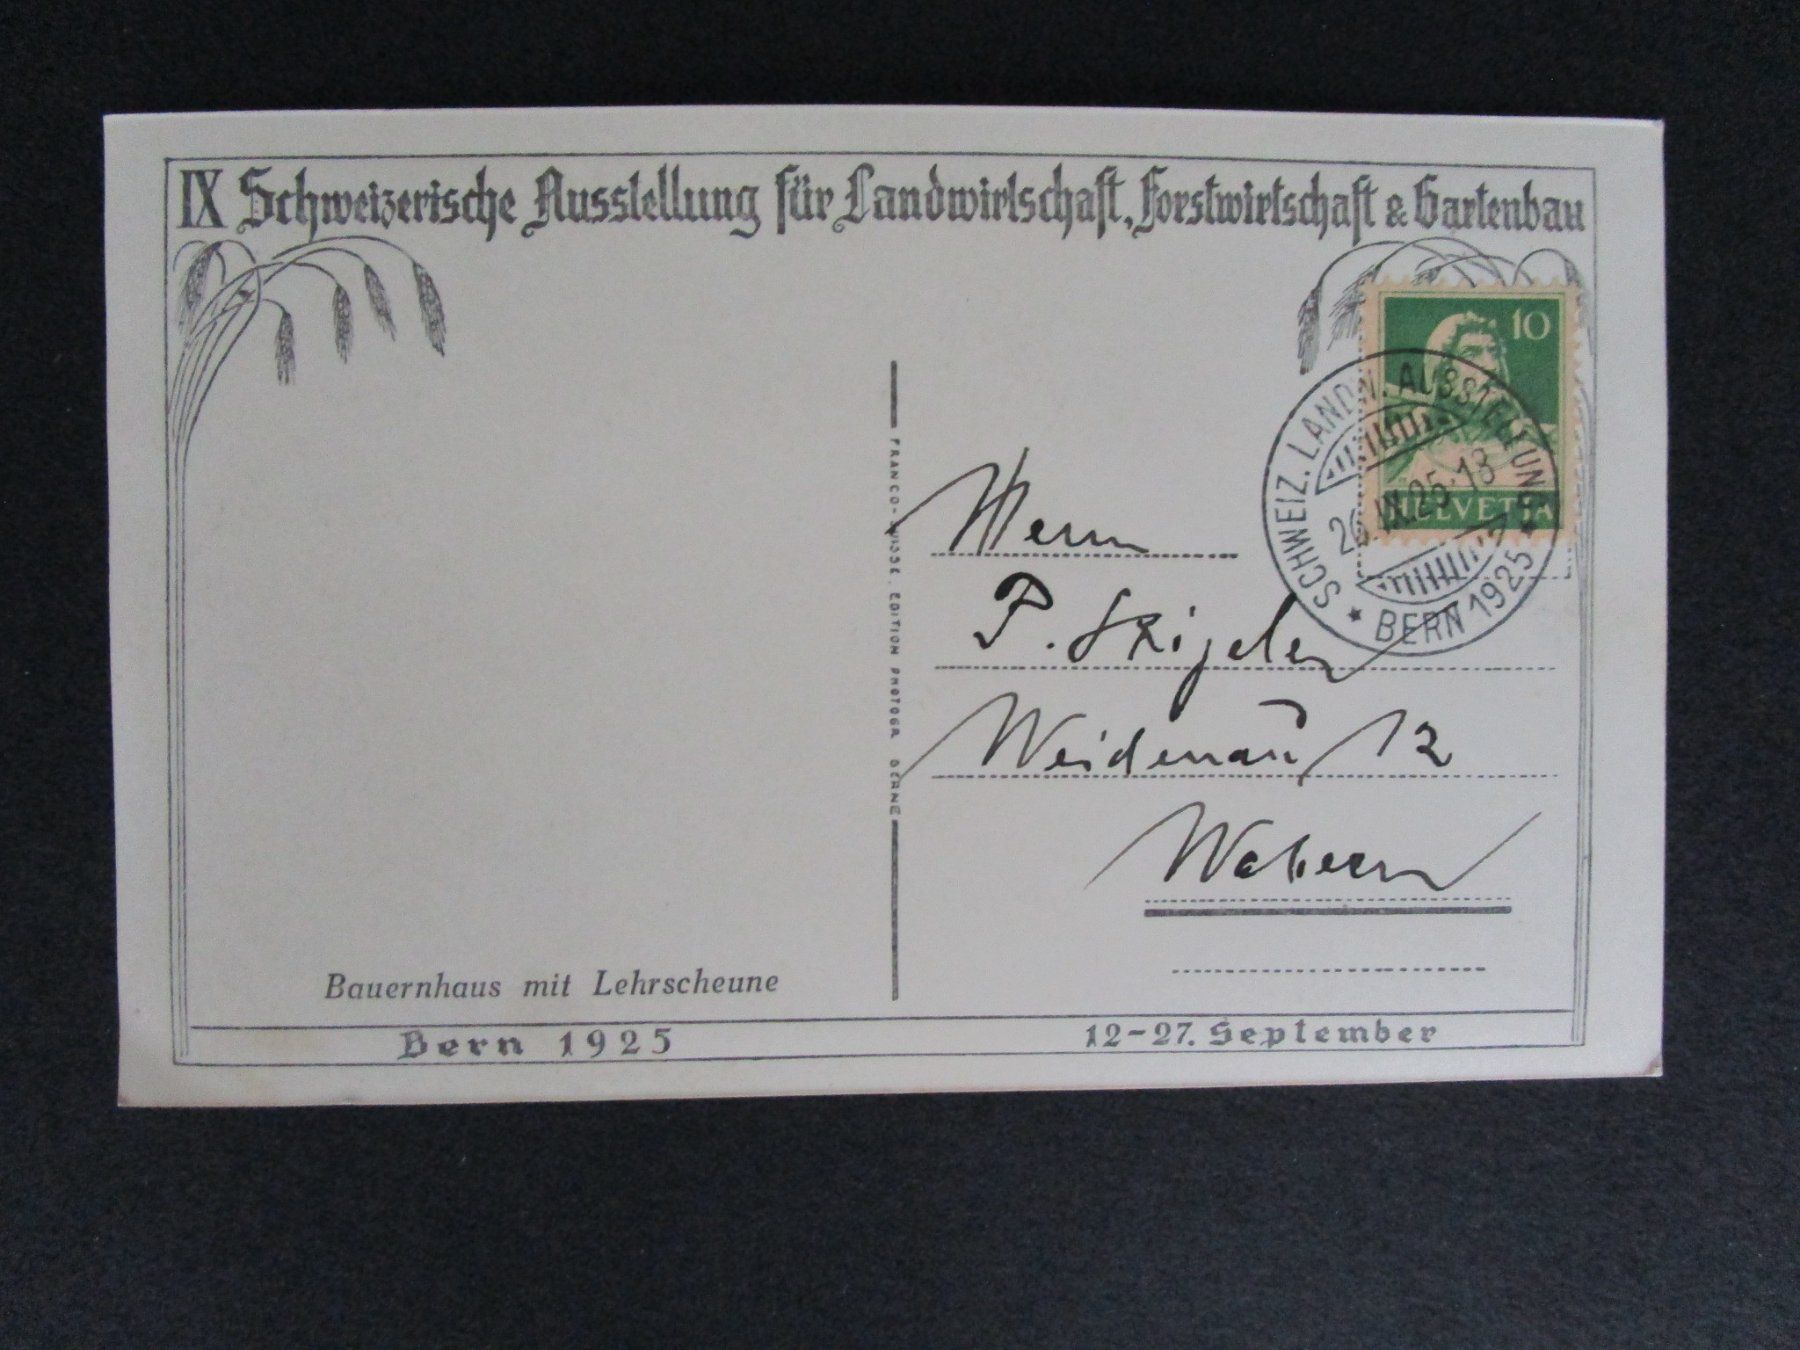 IX Schweizerische Ausstellung für Landwirtschaft, Forstwirtschaft & Gartenbau
10
HELVETIA
SCHWEIZ. LANDW. AUSSTELLUNG
26.IX.25-18
★ BERN 1925 ★
FRANCO-SUISSE, EDITION PHOTOGR BERNE
Herrn
P.
Weidenau 12
Wabern
Bauernhaus mit Lehrscheune
Bern 1925
12-27. September